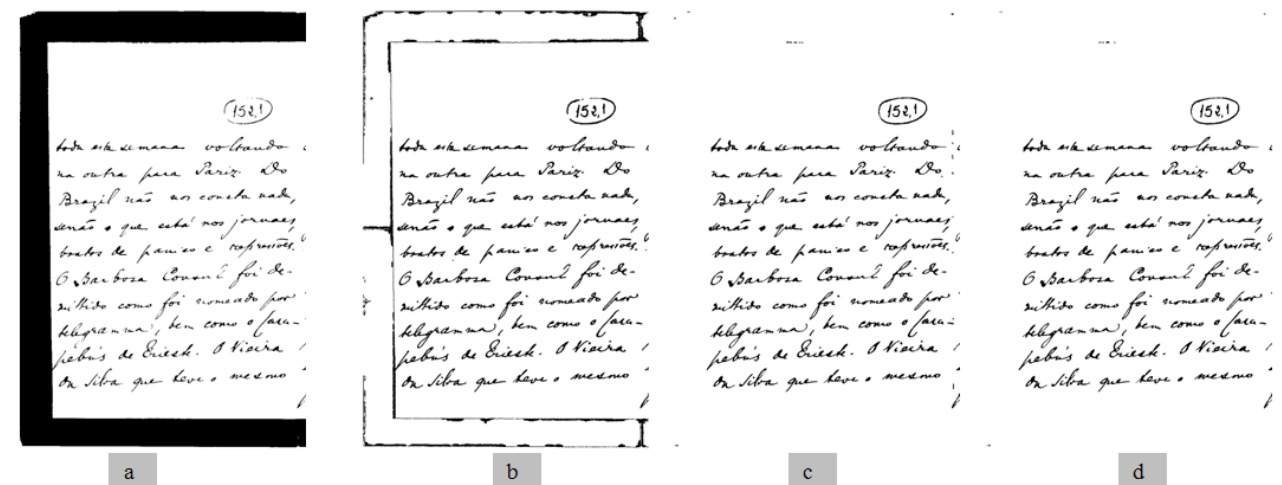 152,1
toda esta semana voltando
na outra para Pariz. Do
Brazil não nos consta nada,
senão o que está nos jornaes,
boatos de panico e
O Barbosa Consul foi de-
mittido como foi nomeado por
telegramma, bem como o Cara-
pebús de Triest. O Vieira
Da Silva que teve o mesmo
a
152,1
toda esta semana voltando
na outra para Pariz. Do
Brazil não nos consta nada,
senão o que está nos jornaes,
boatos de panico e
O Barbosa Consul foi de-
mittido como foi nomeado por
telegramma, bem como o Cara-
pebús de Triest. O Vieira
Da Silva que teve o mesmo
b
152,1
toda esta semana voltando
na outra para Pariz. Do
Brazil não nos consta nada,
senão o que está nos jornaes,
boatos de panico e
O Barbosa Consul foi de-
mittido como foi nomeado por
telegramma, bem como o Cara-
pebús de Triest. O Vieira
Da Silva que teve o mesmo
c
152,1
toda esta semana voltando
na outra para Pariz. Do
Brazil não nos consta nada,
senão o que está nos jornaes,
boatos de panico e
O Barbosa Consul foi de-
mittido como foi nomeado por
telegramma, bem como o Cara-
pebús de Triest. O Vieira
Da Silva que teve o mesmo
d